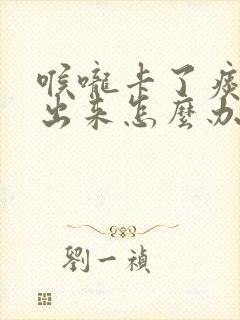 喉嚨卡了痰
出來怎麼办
劉一禎